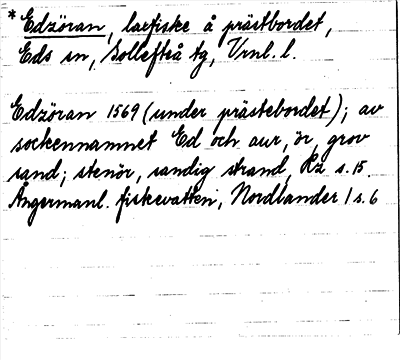 * Edzöran, laxfiske å prästbordet,
Eds sn, Sollefteå tg, Vrnl. l.
Edzöran 1569 (under prästebordet); av
sockennamnet Ed och aur, ör, grov
sand; stenör, sandig strand, Rz s. 15.
Ångermanl. fiskevatten, Nordlander 1 s. 6